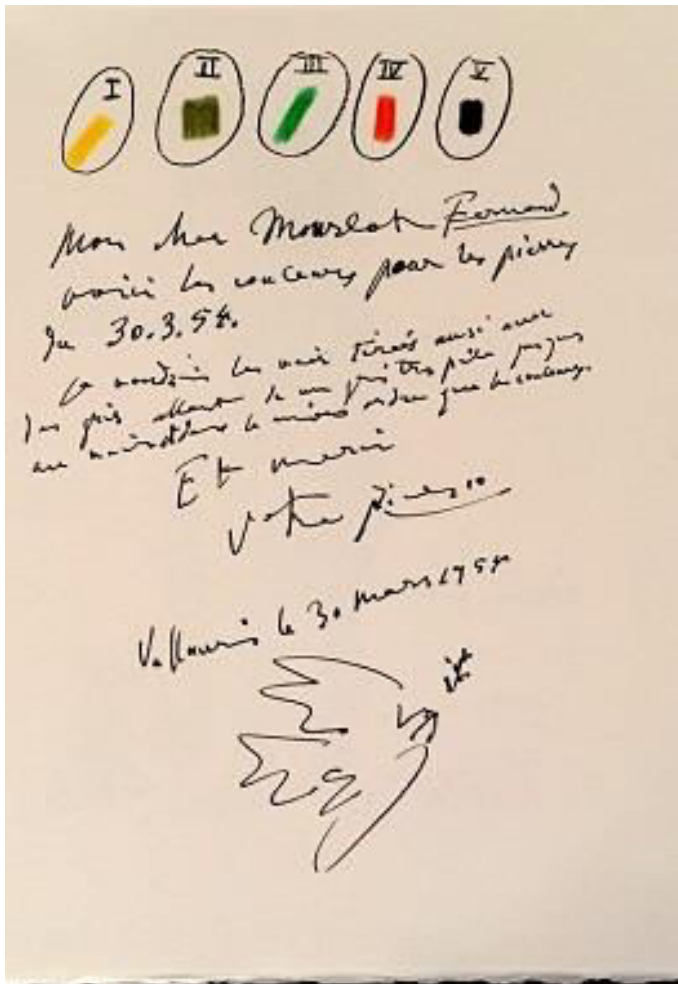 I II III IV V
Mon cher Mourlot Fernand
voici les couleurs pour les pierres
du 30.3.54.
Je voudrais les voir tirés aussi avec
des gris allant de un gris très pâle jusqu'au
au noir et dans le même ordre que les couleurs.
Et merci
Votre Picasso
Vallauris le 30 mars 1954